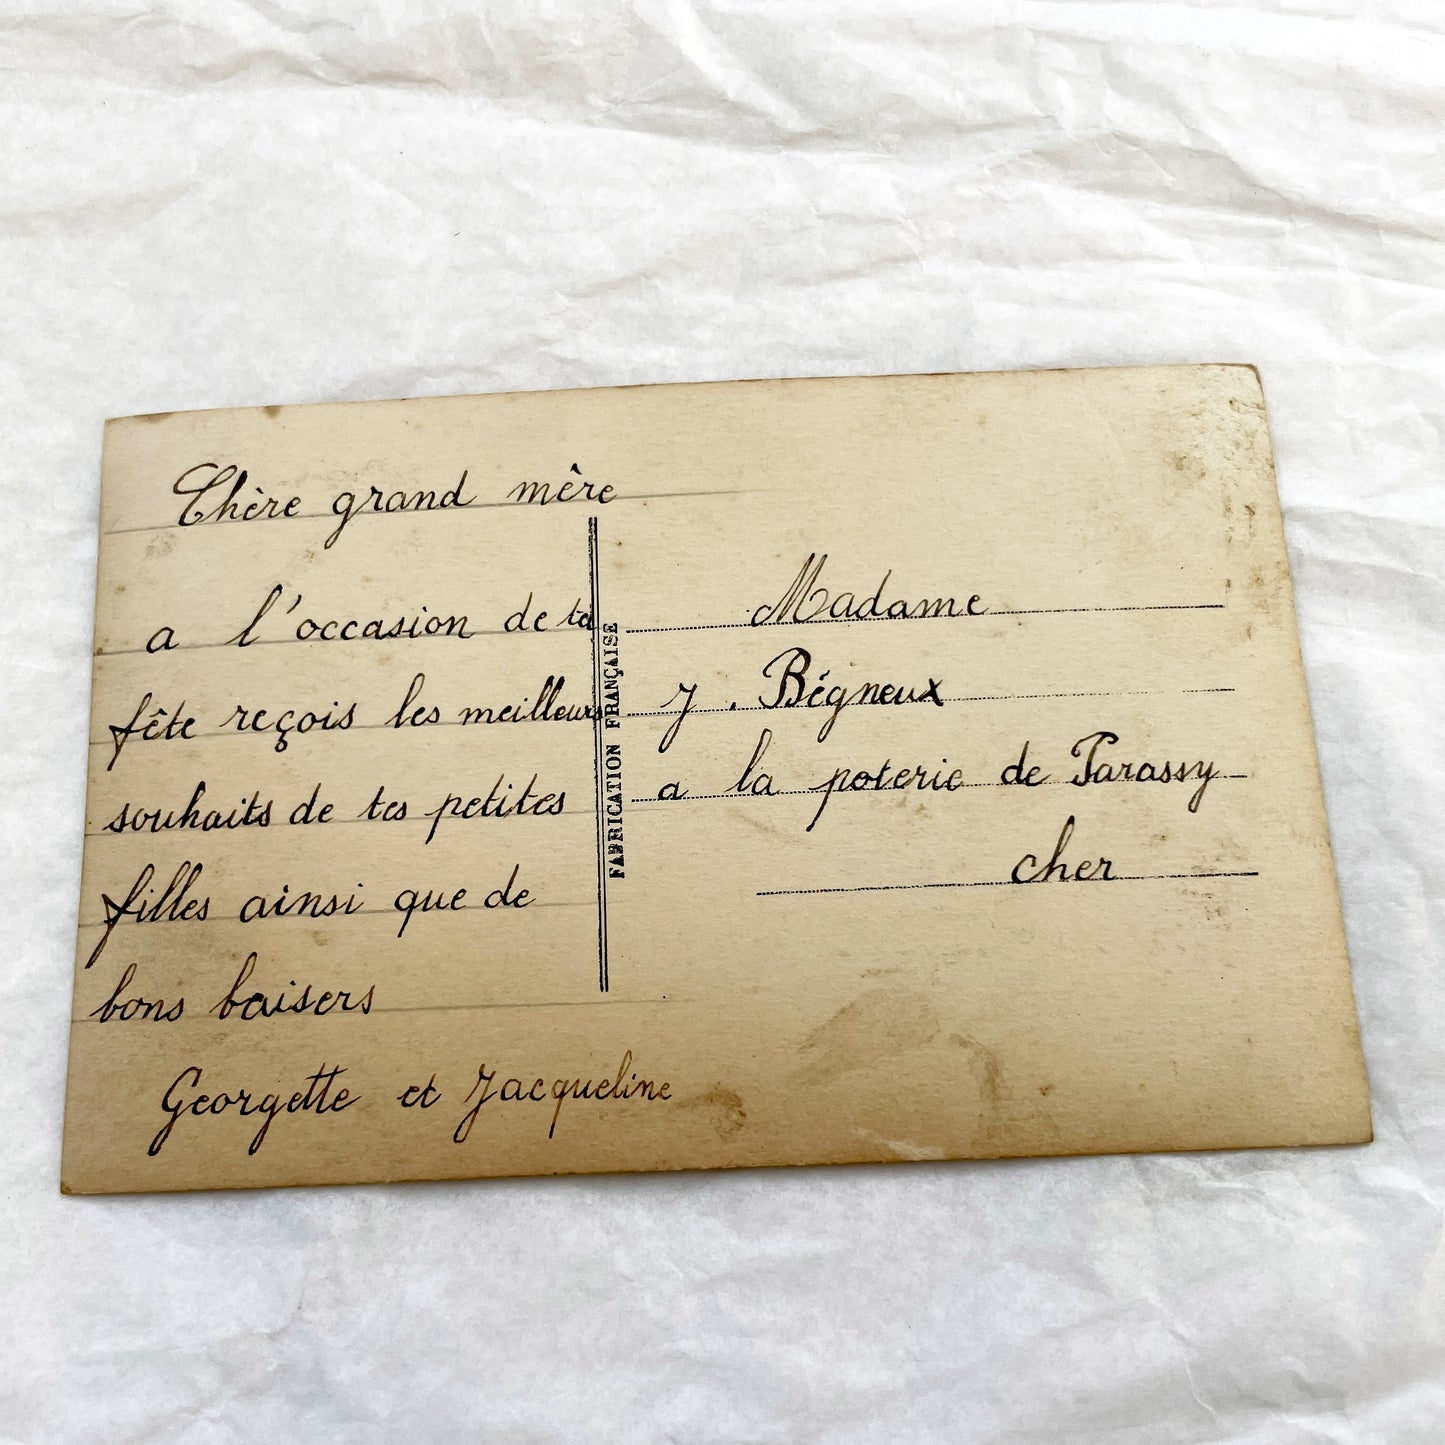 Chère grand mère
a l'occasion de ta
fête reçois les meilleurs
souhaits de tes petites
filles ainsi que de
bons baisers
Georgette et Jacqueline
FABRICATION FRANÇAISE
Madame
J. Bégneux
a la poterie de Parassy
cher